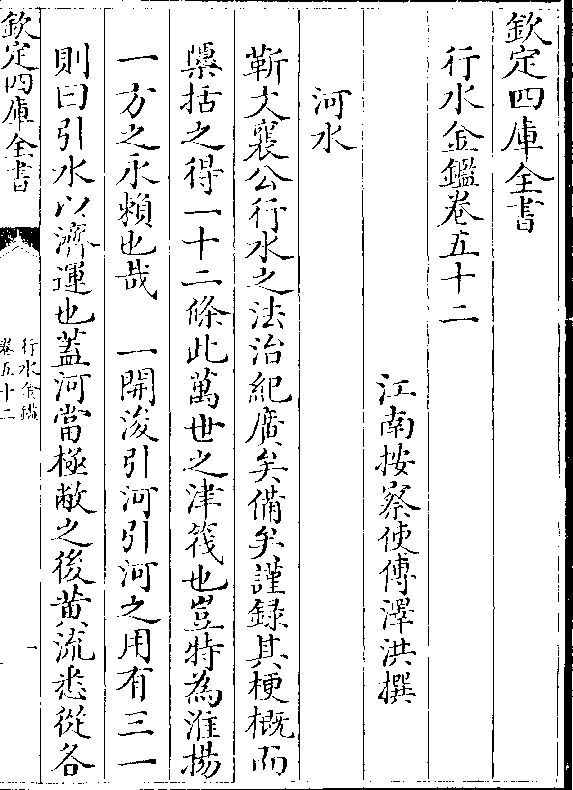 欽定四庫全書
行水金鑑卷五十二
江南按察使傅澤洪撰
河水
靳文襄公行水之法治紀廣矣備矣謹録其梗概而
檃括之得一十二條此萬世之津筏也豈特為淮揚
一方之永賴也哉　一開浚引河引河之用有三一
則曰引水以濟運也蓋河當極敝之後黄流悉從各
欽定四庫全書
行水金鑑
卷五十二
一